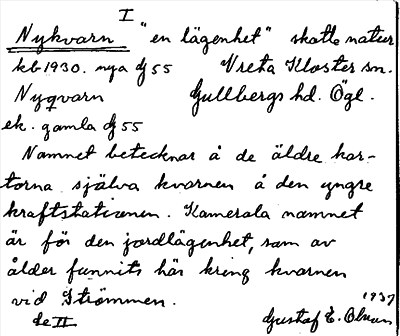 I
Nykvarn "en lägenhet" skatte natur
kb 1930. nya bl 55 Vreta Kloster sn.
Nyqvarn Gullbergs hd. Ögl.
ek. gamla bl 55
Namnet betecknar å de äldre kar-
torna själva kvarnen å den yngre
kraftstationen. Kamerala namnet
är för den jordlägenhet, som av
ålder funnits här kring kvarnen
vid Strömmen.
se II
1937
Gustaf E. Olsson